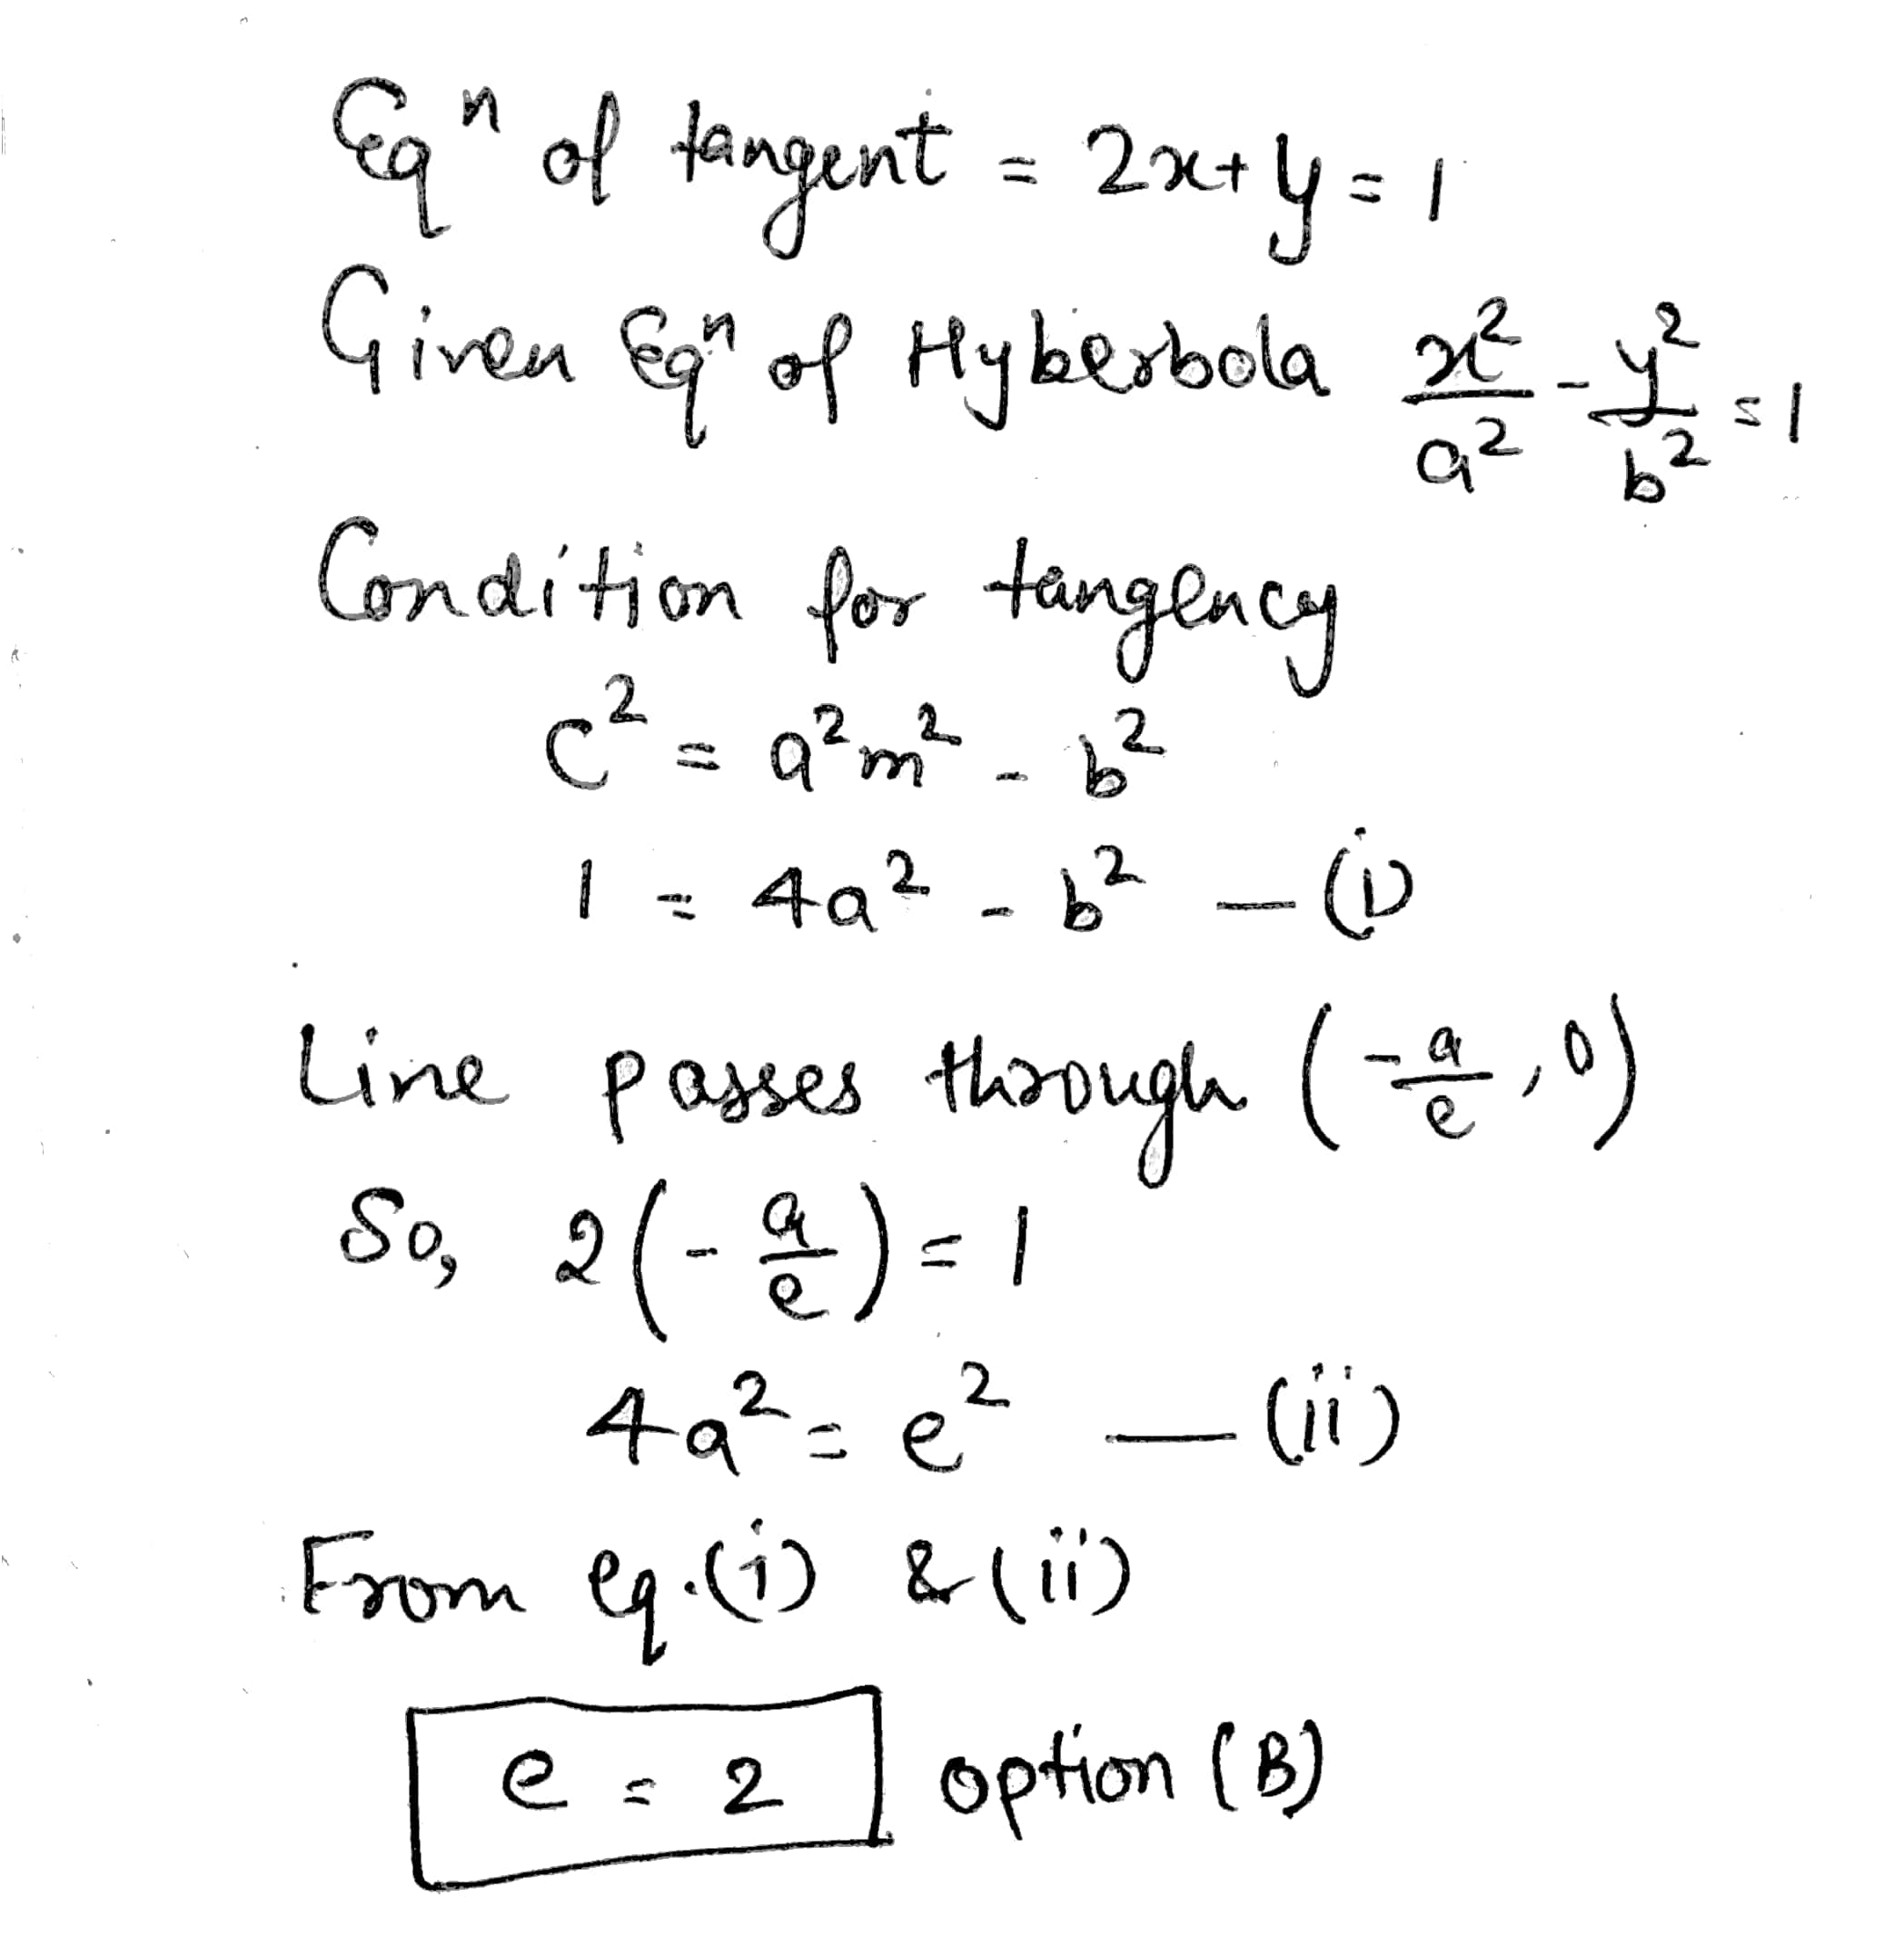 Eqⁿ of tangent = 2x+y=1
Given Eqⁿ of Hyberbola x²/a² - y²/b² = 1
Condition for tangency
c² = a²m² - b²
1 = 4a² - b² — (i)
Line passes through (-a/e, 0)
So, 2(-a/e) = 1
4a² = e² — (ii)
From eq.(i) & (ii)
e = 2 option (B)